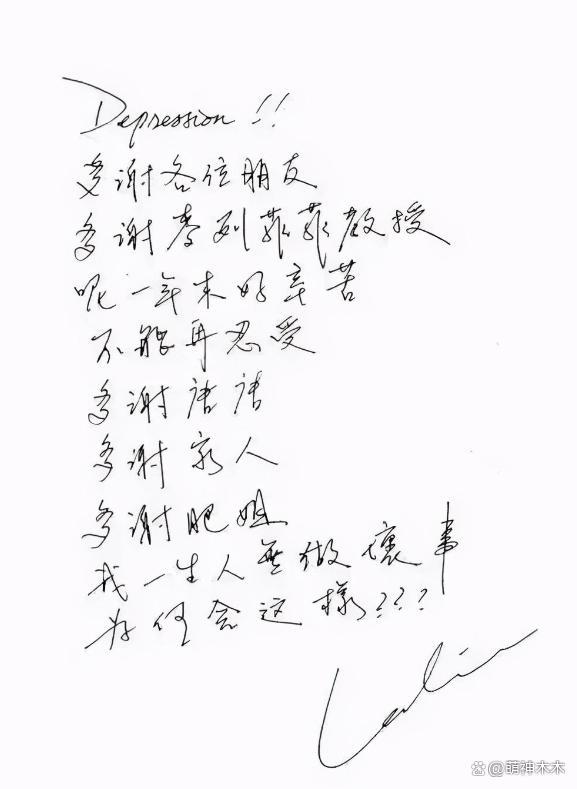 Depression!!
多謝各位朋友
多謝李列菲菲教授
呢一年来好辛苦
不能再忍受
多謝唐唐
多謝家人
多謝肥姐
我一生人無做壞事
为何会这樣???
Leslie
百家号/萌神木木